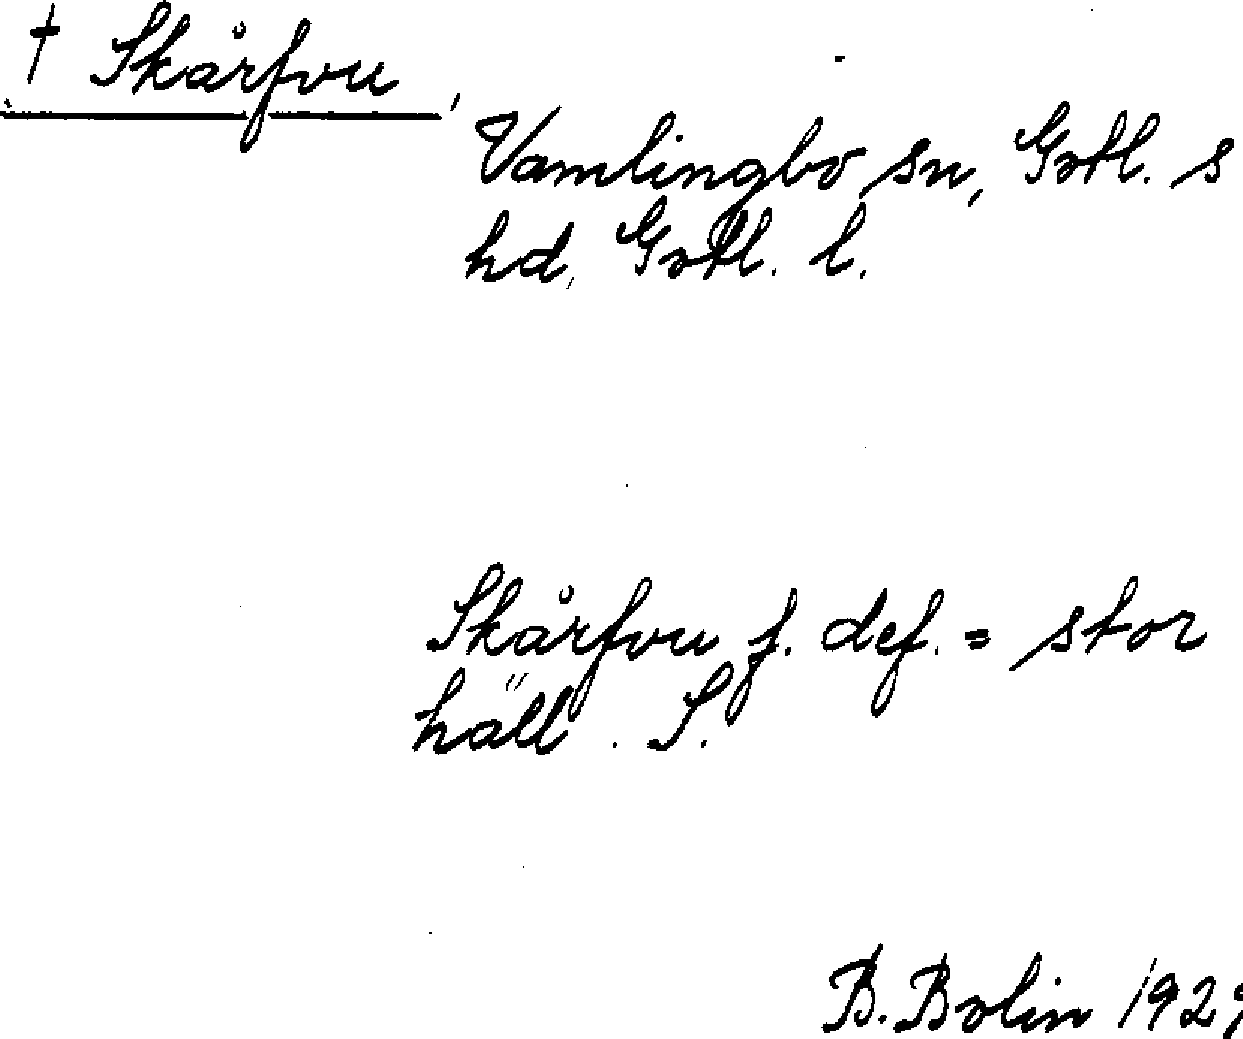 † Skårfvu,
Vamlingbo sn, Gotl. s
hd, Gotl. l.
Skårfvu f. def. = stor
häll. S.
B. Bolin